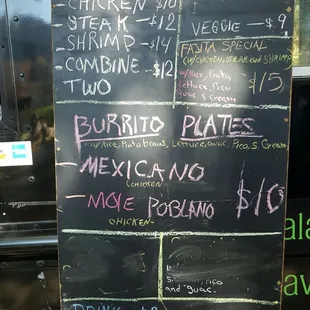 CHICKEN $10
STEAK - $12
SHRIMP - $14
COMBINE - $12
TWO
VEGGIE - $9
FAJITA SPECIAL
W/CHICKEN, STEAK OR SHRIMP
w/Rice, Pinto,
Lettuce, Pico
Guac S. Cream
$15
BURRITO PLATES
w/Rice, Pinto beans, Lettuce, Guac, Pico, S. Cream
- MEXICANO
(CHICKEN)
- MOLE POBLANO $10
CHICKEN-
PICO
and guac.
DRINK